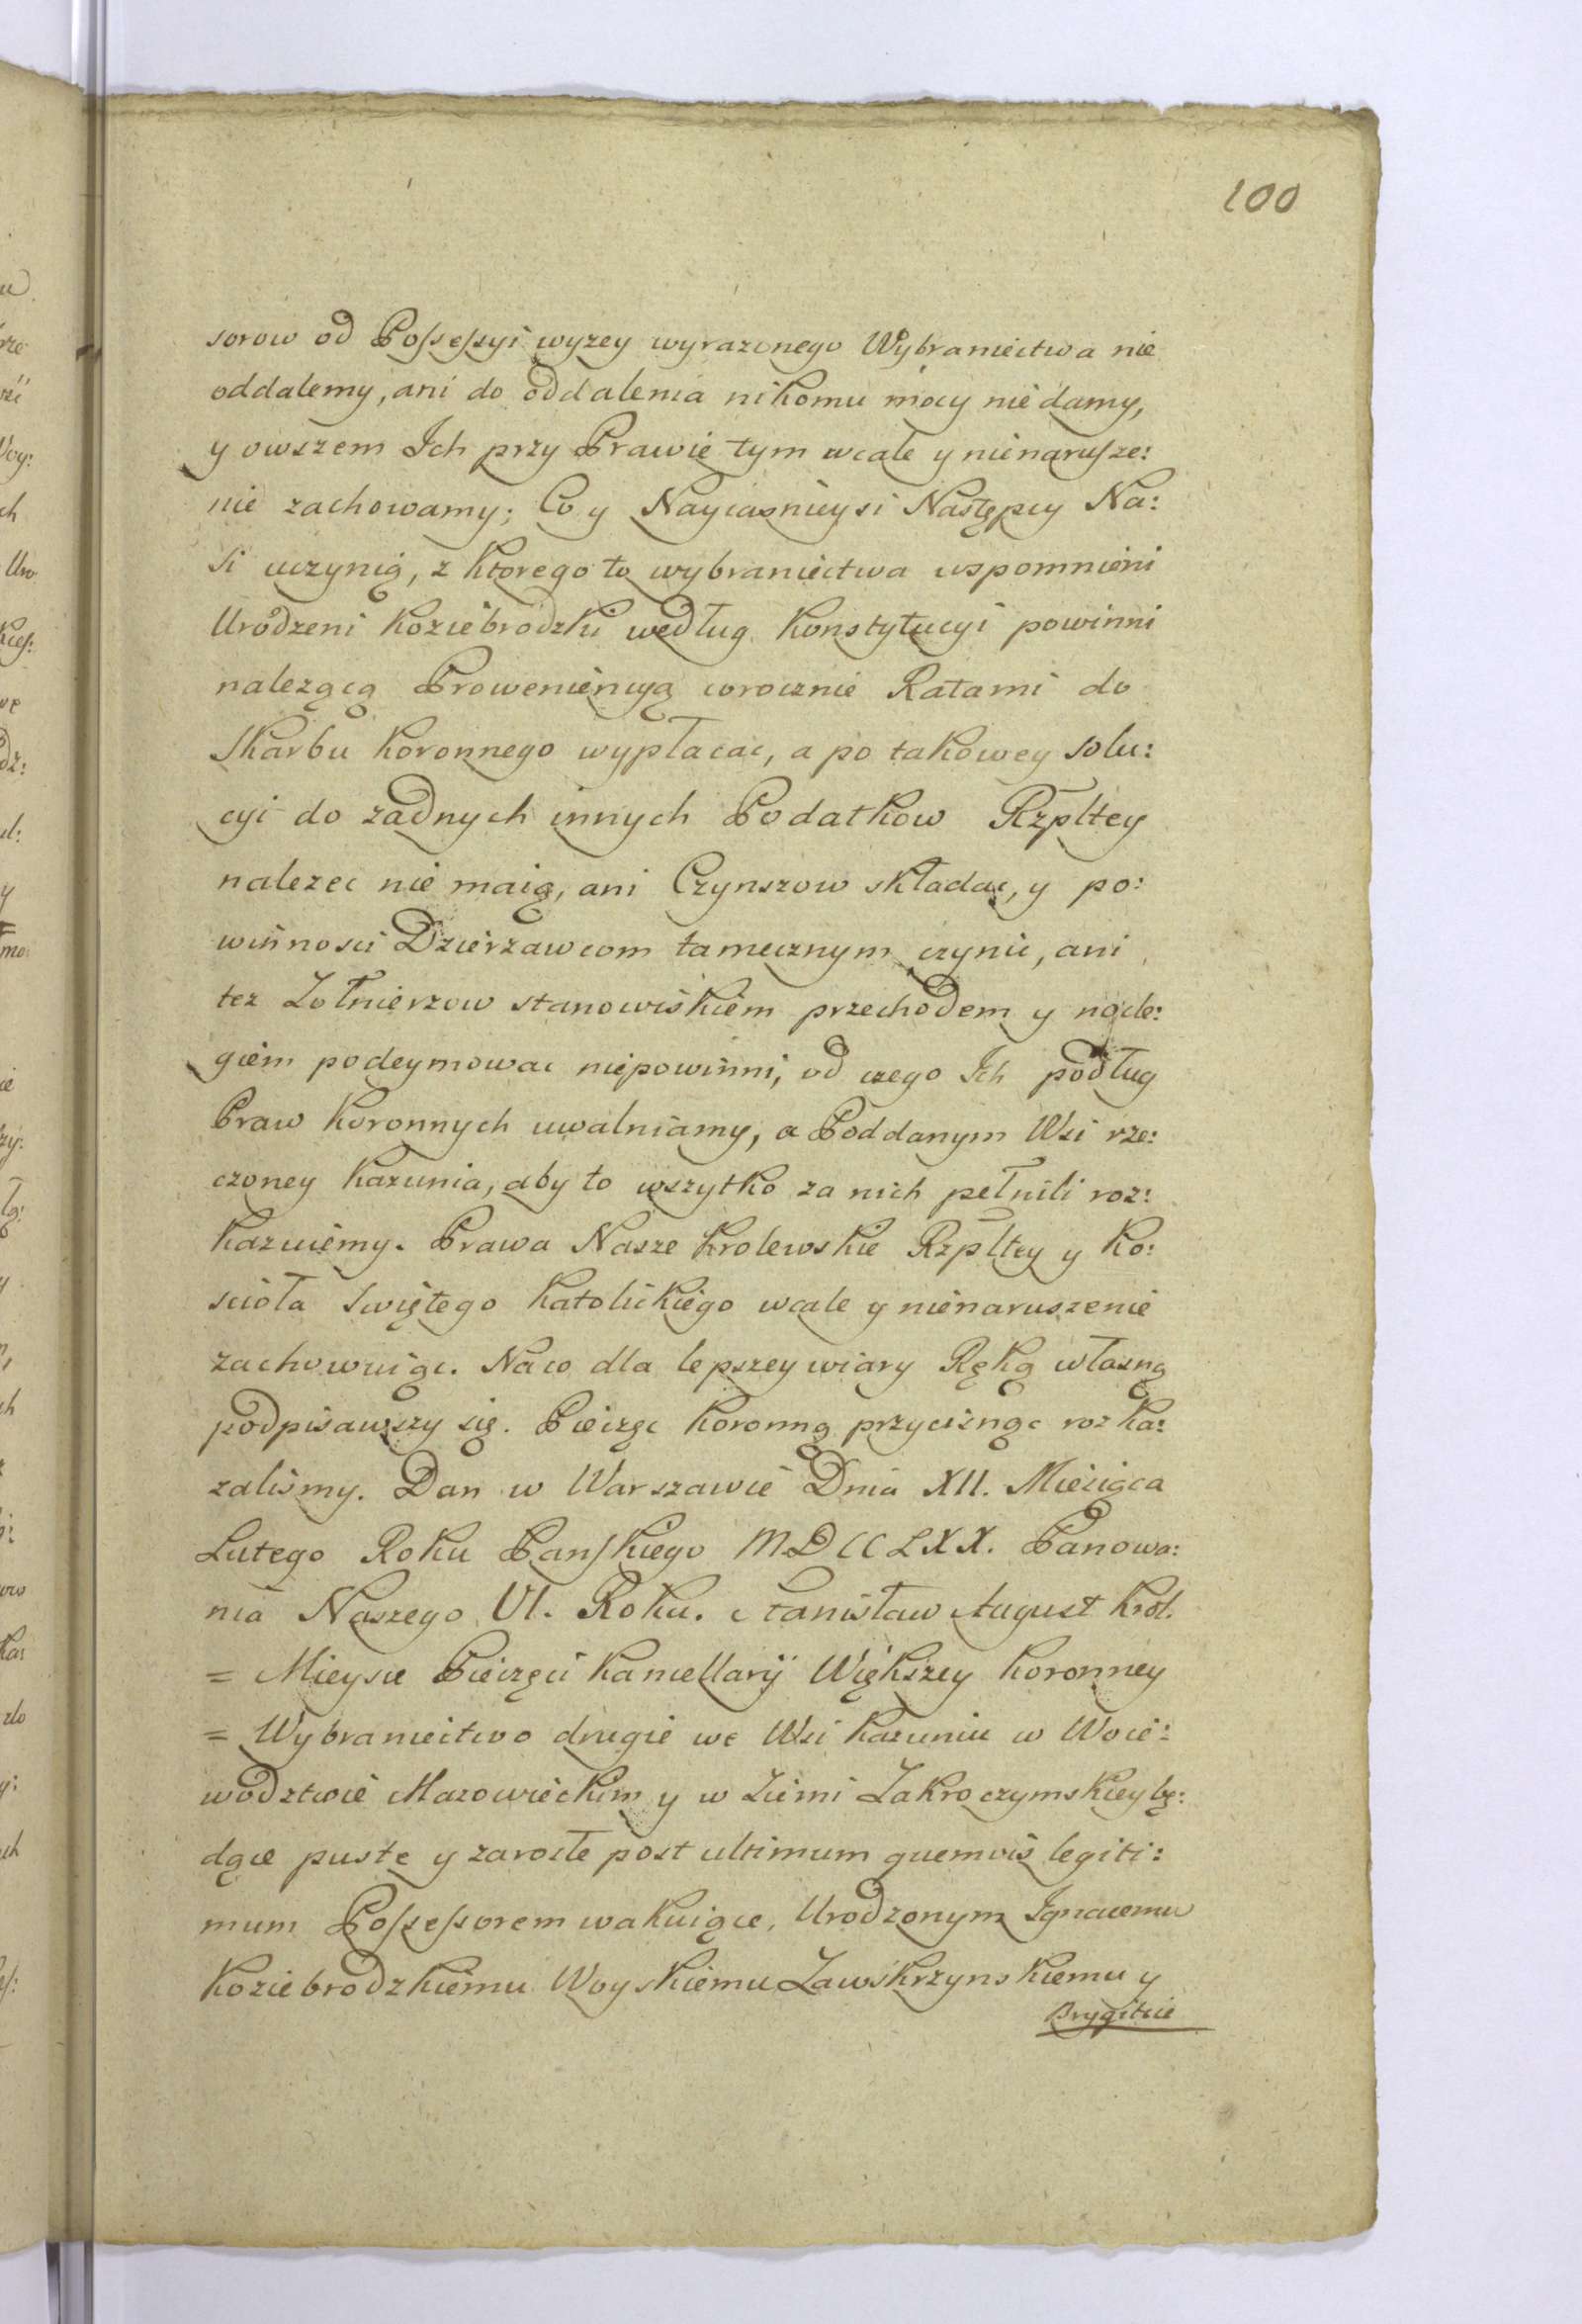 100
sorow od Possessyi wyzey wyrazonego Wybraniectwa nie
oddalemy, ani do oddalenia nikomu mocy nie damy,
y owszem Ich przy Prawie tym wcale y nienarusze:
nie zachowamy; Co y Nayiasnieysi Następcy Na:
si uczynią, z ktorego to wybraniectwa wspomnieni
Urodzeni Koziebrodzki według Konstytucyi powinni
nalezącą Prowenięncyą corocznie Ratami do
Skarbu Koronnego wypłacac, a po takowey Solu:
cyi do zadnych innych Podatkow Rzpltey
nalezec nie maią, ani Czynszow składac, y po:
winnosci Dzierzawcom tamecznym czynic, ani
tez Zołnierzow stanowiskiem przechodem y nocle:
giem podeymowac niepowinni, od czego Ich podług
Praw Koronnych uwalniamy, a Poddanym Wsi rze:
czoney Kazunia, aby to wszytko za nich pełnili roz:
kazuiemy. Prawa Nasze Krolewskie Rzpltey y Ko:
scioła Swiętego Katolickiego wcale y nienaruszenie
zachowuiąc. Naco dla lepszey wiary Ręką własną
podpisawszy się. Pieczęc Koronną przycisnąc roz ka:
zalismy. Dan w Warszawie Dnia XII. Miesiąca
Lutego Roku Panskiego MDCCLXX. Panowa:
nia Naszego VI. Roku. Stanisław August Krol.
= Mieysce Pieczęci Kancellaryi Większey Koronney
= Wybraniectwo drugie we Wsi Kazuniu w Woie:
wodztwie Mazowieckim y w Ziemi Zakroczymskiey bę:
dące puste y zarosłe post ultimum quemvis legiti:
mum Possessorem wakuiące, Urodzonym Ignacemu
Koziebrodzkiemu Woyskiemu Zawskrzynskiemu y
Brygitcie